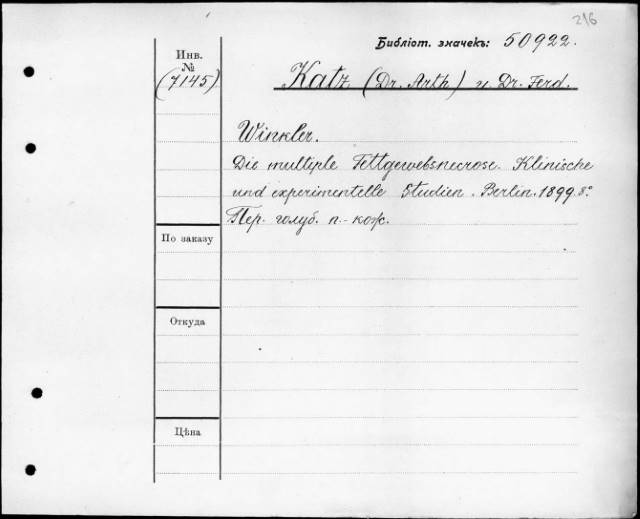 216
Библіот. значекъ: 50922.
Инв.
№
(7145)
Katz (Dr. Arth) u. Dr. Ferd.
Winkler.
Die multiple Fettgewebsnecrose. Klinische
und experimentelle Studien. Berlin. 1899 8°.
Пер. голуб. п.-кож.
По заказу
Откуда
Цѣна